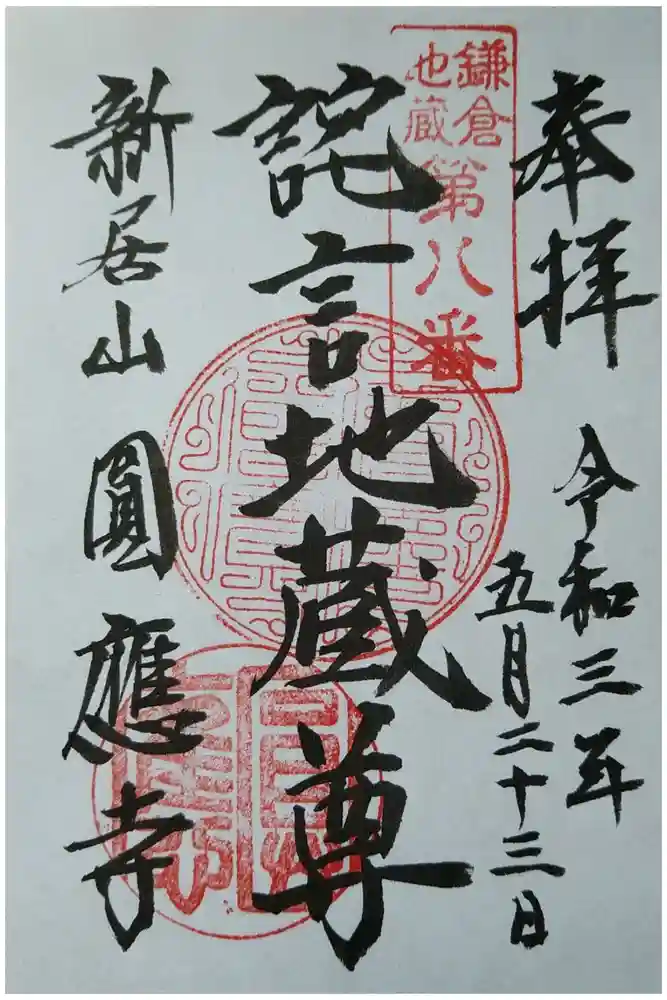 奉拝
令和三年
五月二十三日
鎌倉
地蔵
第八番
詫言地蔵尊
新居山 圓應寺